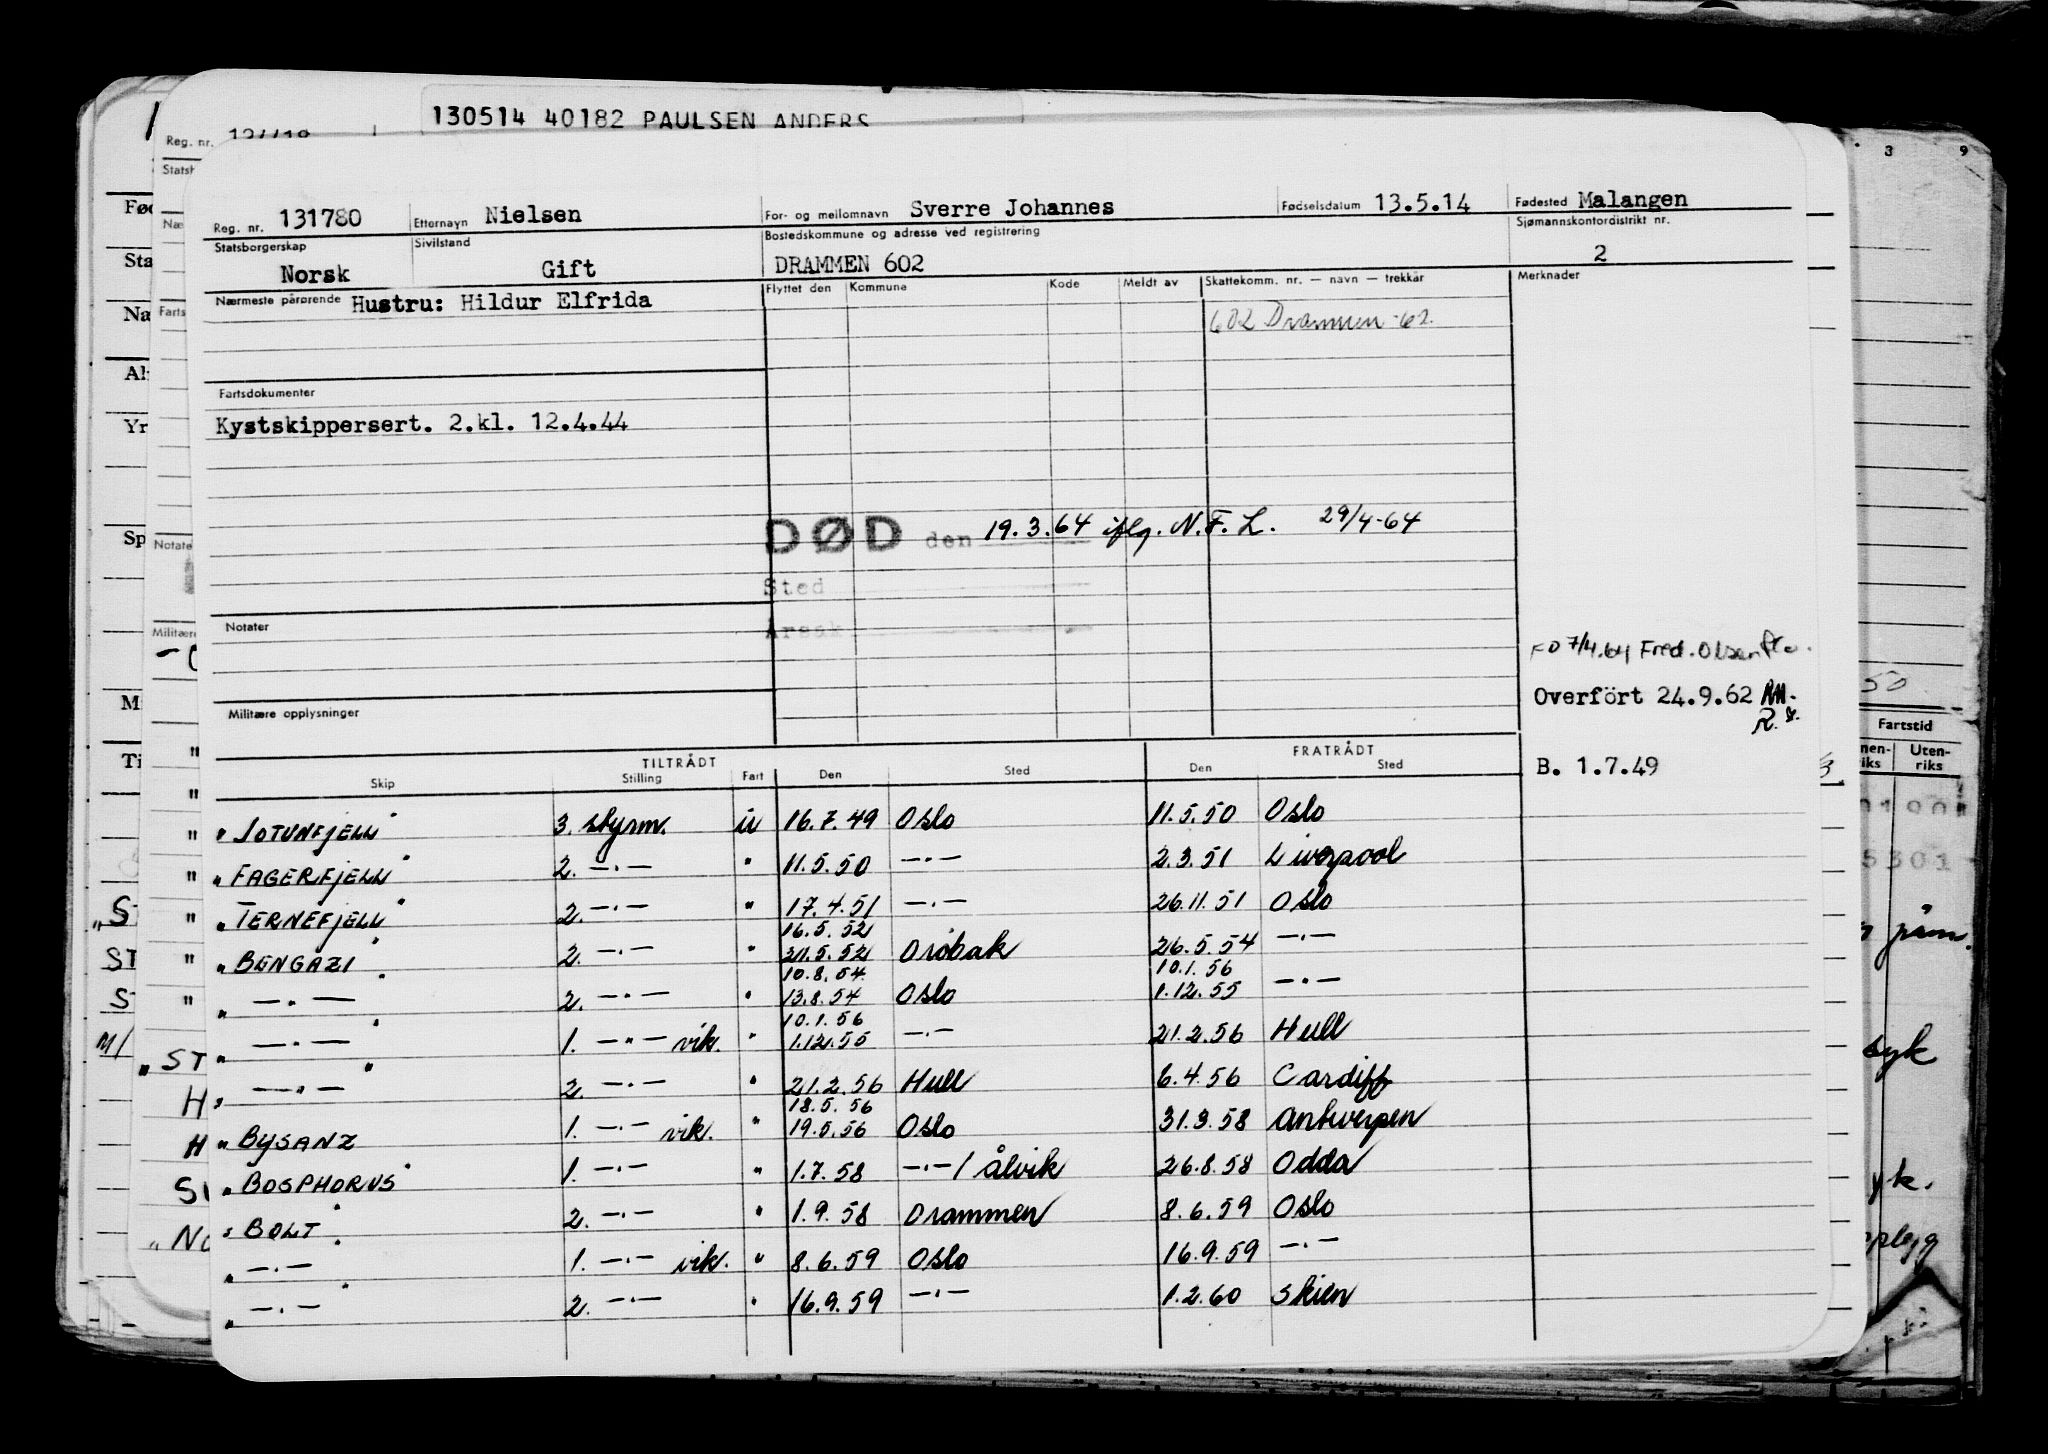 130514 40182 PAULSEN ANDERS
Reg. nr. 131780 Etternavn Nielsen For- og mellomnavn Sverre Johannes Fødselsdatum 13.5.14 Fødested Malangen
Statsborgerskap Norsk Sivilstand Gift Bostedskommune og adresse ved registrering DRAMMEN 602 Sjømannskontordistrikt nr. 2
Nærmeste pårørende Hustru: Hildur Elfrida Flyttet den Kommune Kode Meldt av Skattekomm. nr. — navn — trekkår Merknader
602 Drammen -62
Fartsdokumenter
Kystskippersert. 2.kl. 12.4.44
DØD den 19.3.64 iflg. N.F.L. 29/4-64
Sted
Årsak
Notater
FD 7/4.64 Fred. Olsen
Overført 24.9.62
Militære opplysninger
B. 1.7.49
TILTRÅDT FRATRÅDT
Skip Stilling Fart Den Sted Den Sted
" JOTUNFJELL" 3. styrm. u 16.7.49 Oslo 11.5.50 Oslo
" FAGERFJELL" 2. —·— " 11.5.50 —·— 2.3.51 Liverpool
" TERNEFJELL" 2. —·— " 17.4.51 —·— 26.11.51 Oslo
16.5.52
" BENGAZI" 2. —·— " 21.5.52 Drøbak 26.5.54 —·—
10.8.54 10.1.56
" —·— " 2. —·— " 13.8.54 Oslo 1.12.55 —·—
10.1.56
" —·— " 1. —·— vik. " 1.12.55 —·— 21.2.56 Hull
" —·— " 2. —·— " 21.2.56 Hull 6.4.56 Cardiff
18.5.56
" BYSANZ 1. —·— vik. " 19.5.56 Oslo 31.3.58 Antwerpen
" BOSPHORUS" 1. —·— " 1.7.58 —·— / Ålvik 26.8.58 Odda
" BOLT" 2. —·— " 1.9.58 Drammen 8.6.59 Oslo
" —·— " 1. —·— vik. " 8.6.59 Oslo 16.9.59 —·—
" —·— " 2. —·— " 16.9.59 —·— 1.2.60 Skien
Fartstid
Uten-
riks
syk